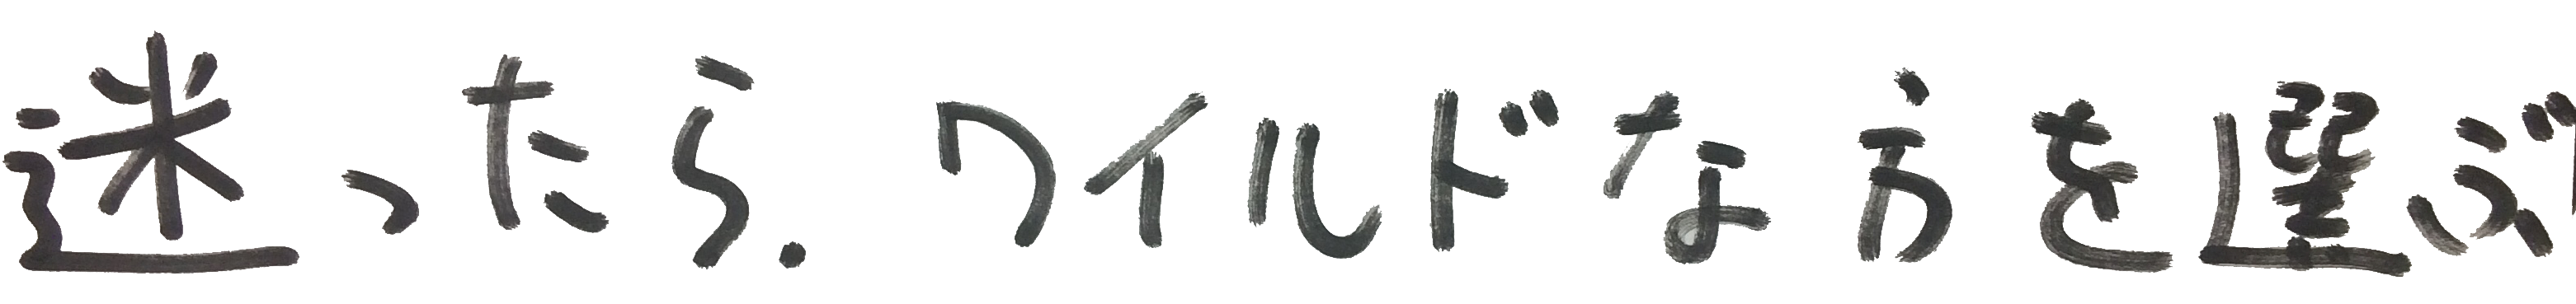 迷ったら.ワイルドな方を選ぶ